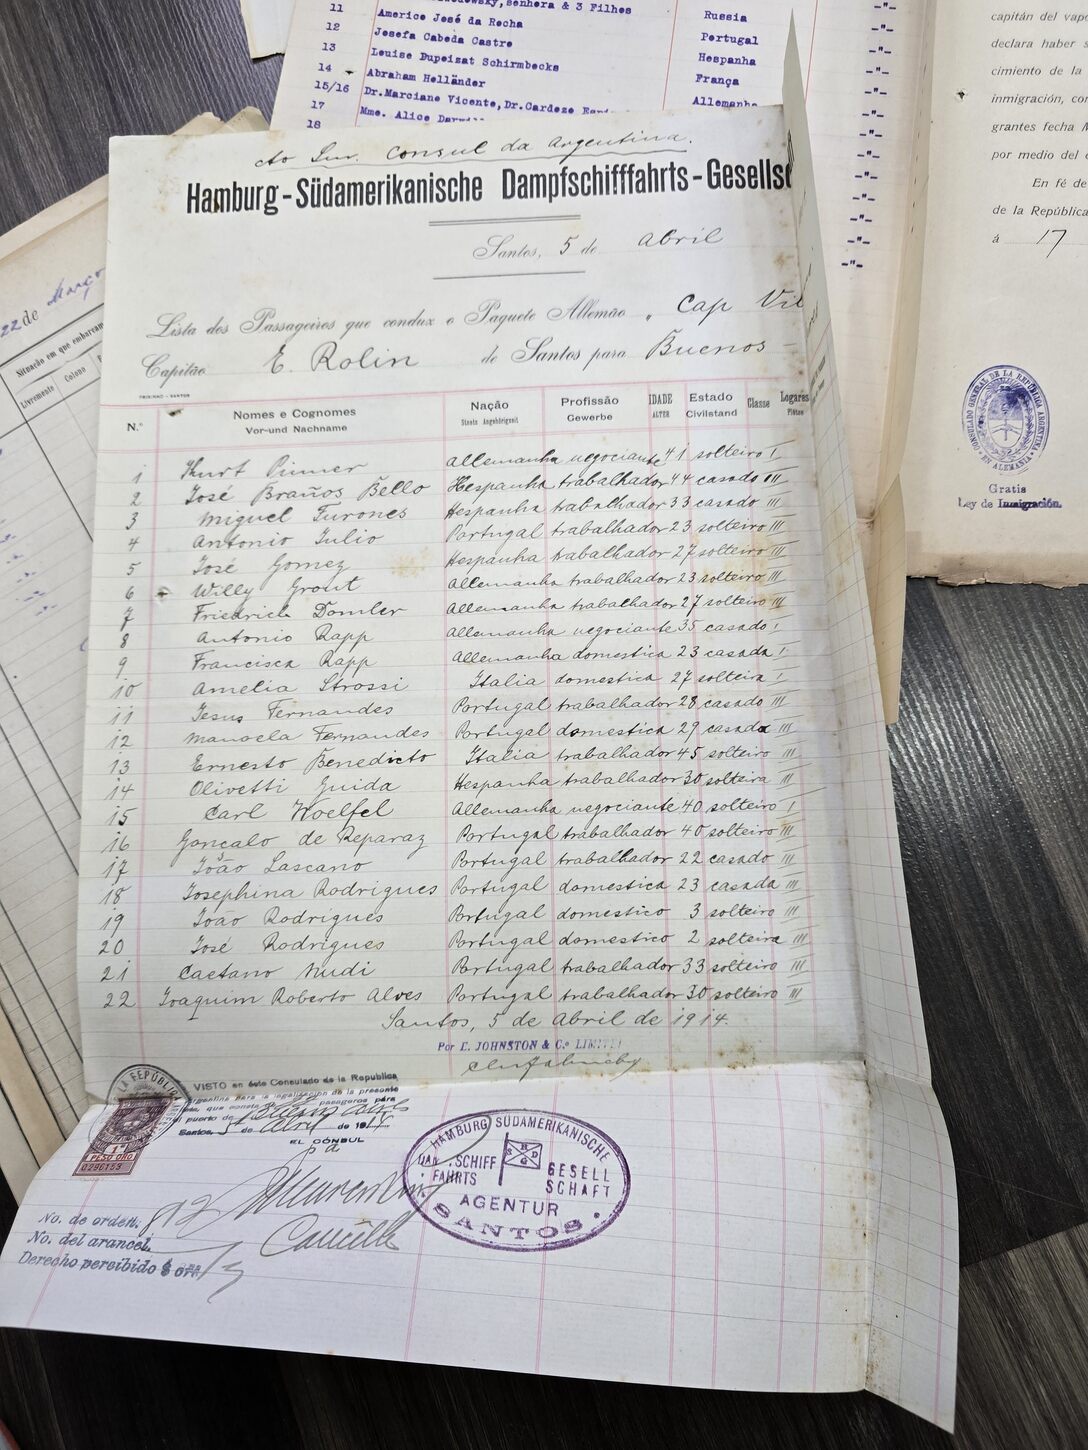 senhora & 3 Filhos
11 Americo José da Rocha Russia -"-
12 Josefa Cabeda Castre Portugal -"-
13 Louise Dupeizat Schirmbecks Hespanha -"-
14 Abraham Helländer França -"-
15/16 Dr.Marciane Vicente,Dr.Cardeze Allemanha -"-
17 Mme. Alice
18
capitán del vapo
declara haber s
cimiento de la
inmigración, con
grantes fecha
por medio del c
En fé de
de la República
á 17
CONSULADO GENERAL DE LA REPÚBLICA ARGENTINA
EN ALEMANIA
Gratis
Ley de Inmigración.
22 de Março
Situação em que embarcam
Livremente Colono
Ao Snr. Consul da Argentina.
Hamburg-Südamerikanische Dampfschifffahrts-Gesellsc
Santos, 5 de Abril
Lista dos Passageiros que conduz o Paquete Allemão „ Cap Vil
Capitão E. Rolin de Santos para Buenos -
N.º Nomes e Cognomes Nação Profissão IDADE Estado Classe Logares
Vor-und Nachname Staats Angehörigkeit Gewerbe ALTER Civilstand Plätze
1 Kurt Pinner Allemanha negociante 41 solteiro I
2 José Braños Bello Hespanha trabalhador 44 casado III
3 Miguel Furones Hespanha trabalhador 33 casado III
4 Antonio Julio Portugal trabalhador 23 solteiro III
5 José Gomez Hespanha trabalhador 27 solteiro III
6 Willy Grout Allemanha trabalhador 23 solteiro III
7 Friedrich Domler Allemanha trabalhador 27 solteiro III
8 Antonio Rapp Allemanha negociante 35 casado I
9 Francisca Rapp Allemanha domestica 23 casada I
10 Amelia Strossi Italia domestica 27 solteira I
11 Jesus Fernandes Portugal trabalhador 28 casado III
12 Manoela Fernandes Portugal domestica 29 casada III
13 Ernesto Benedicto Italia trabalhador 45 solteiro III
14 Olivetti Guida Hespanha trabalhador 30 solteira III
15 Carl Woelfel Allemanha negociante 40 solteiro I
16 Gonçalo de Reparaz Portugal trabalhador 40 solteiro III
17 João Lascano Portugal trabalhador 22 casado III
18 Josephina Rodrigues Portugal domestica 23 casada III
19 João Rodrigues Portugal domestico 3 solteiro III
20 José Rodrigues Portugal domestico 2 solteira III
21 Caetano Nudi Portugal trabalhador 33 solteiro III
22 Joaquim Roberto Alves Portugal trabalhador 30 solteiro III
Santos, 5 de Abril de 1914.
Por E. JOHNSTON & C.º LIMITED
VISTO en éste Consulado de la Republica
Argentina para la legalización de la presente
que consta pasageros para
el puerto de Buenos Aires
Santos, 5 de Abril de 1914
EL CÓNSUL
p a
1 PESO ORO
0296153
Canciller
No. de orden. 812
No. del arancel.
Derecho percibido $ oro
HAMBURG SÜDAMERIKANISCHE
DAMPFSCHIFF GESELL
FAHRTS SCHAFT
H S D G
AGENTUR
SANTOS